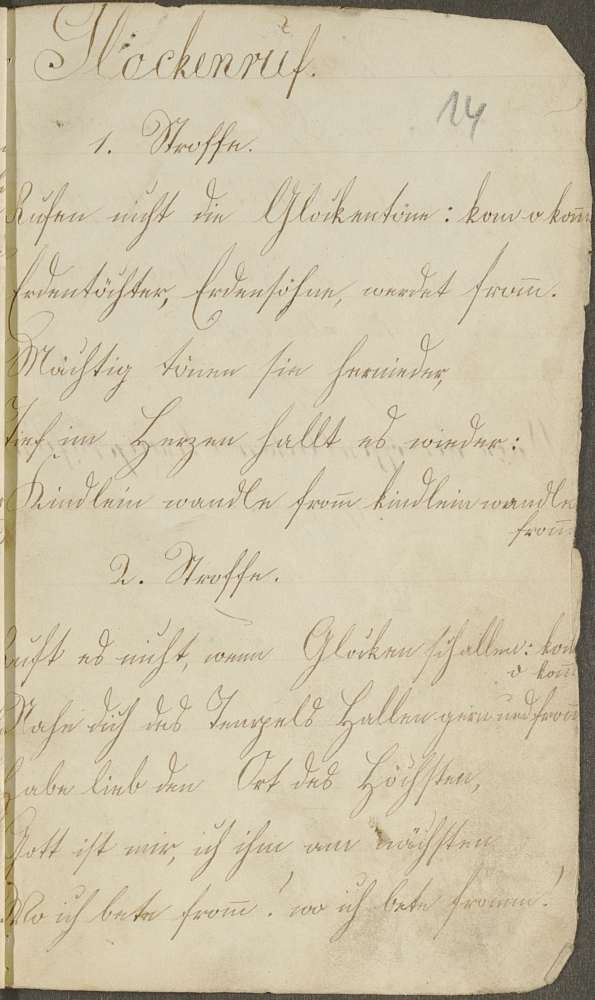 Glockenruf.
14
1. Stroffe.
Rufen nicht die Glockentöne: kom̅ o kom̅
Erdentöchter, Erdensöhne, werdet from̅.
Mächtig tönen sie hernieder,
Tief im Herzen hallt es wieder:
Kindlein wandle from̅ kindlein wandle
from̅.
2. Stroffe.
Ruft es nicht, wenn Glocken schallen: kom̅
o kom̅
Nahe dich des Tempels Hallen gern und from̅
Habe lieb den Ort des Höchsten,
Gott ist mir, ich ihm am nächsten
Wo ich bete from̅! wo ich bete fromm!